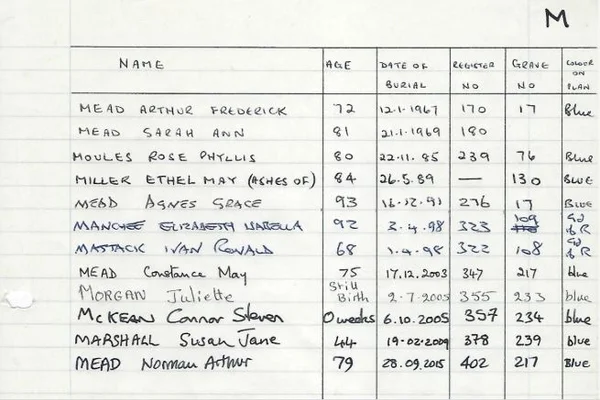 M
NAME AGE DATE OF BURIAL REGISTER NO GRAVE NO COLOUR ON PLAN
MEAD ARTHUR FREDERICK 72 12.1.1967 170 17 Blue
MEAD SARAH ANN 81 21.1.1969 180
MOULES ROSE PHYLLIS 80 22.11.85 239 76 Blue
MILLER ETHEL MAY (ASHES OF) 84 26.5.89 — 130 BLUE
MEAD AGNES GRACE 93 16.12.91 276 17 BLUE
MANCHEE ELIZABETH 92 2.4.98 323 109 Gd of R
MASTACK IVAN RONALD 68 1.4.98 322 108 Gd of R
MEAD Constance May 75 17.12.2003 347 217 blue
MORGAN Juliette Still Birth 2.7.2005 355 233 blue
McKEAN Connor Steven 0 weeks 6.10.2005 357 234 blue
MARSHALL Susan Jane 44 19-02-2009 378 239 blue
MEAD Norman Arthur 79 28.09.2015 402 217 Blue